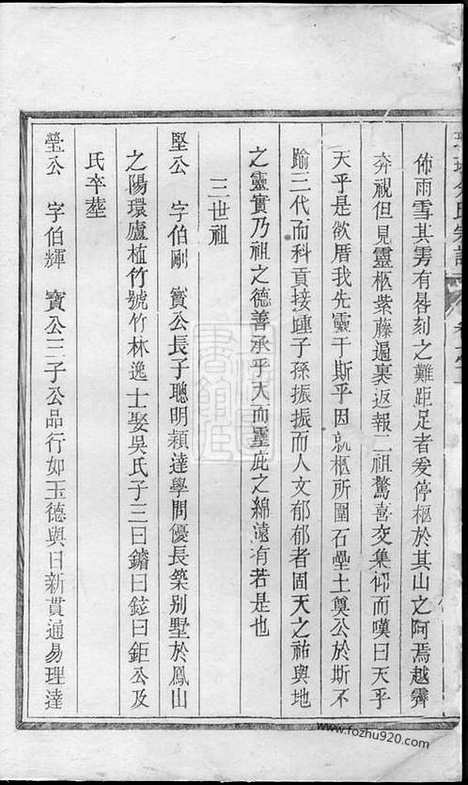 佈雨雪其雱有晷刻之難距足者爰停柩於其山之阿焉越霽
奔視但見靈柩紫藤遍裹返報二祖驚喜交集仰而嘆曰天乎
天乎是欲厝我先靈于斯乎因就柩所圍石壘土奠公於斯不
踰三代而科貢接踵子孫振振而人文郁郁者固天之祐與地
之靈實乃祖之德善承乎天而靈庇之綿遠有若是也
三世祖
堅公 字伯剛 寶公長子聰明穎達學問優長築別墅於鳳山
之陽環廬植竹號竹林逸士娶吳氏子三曰鏥曰鋐曰鉅公及
氏卒塟
瑩公 字伯輝 寶公三子公品行如玉德與日新貫通易理達
www.fozhu920.com